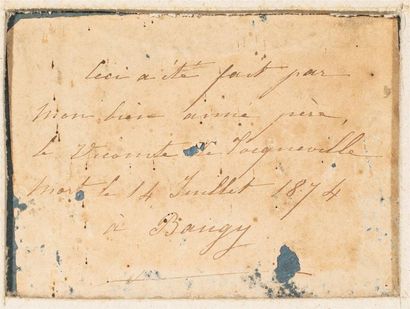 Ceci a été fait par
mon bien aimé père,
le Vicomte de Joigneville
mort le 14 Juillet 1874
à Baugy